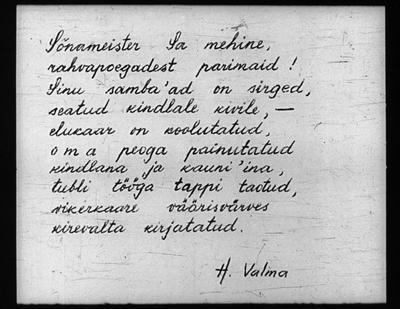 Sõnameister Sa mehine,
rahvapoegadest parimaid!
Sinu samba'ad on sirged,
seatud kindlale kivile, —
elukaar on koolutatud,
oma peoga painutatud
kindlana ja kauni'ina,
tubli tööga tappi taotud,
vikerkaare väärisvärves
kirevalta kirjatatud.
H. Valma